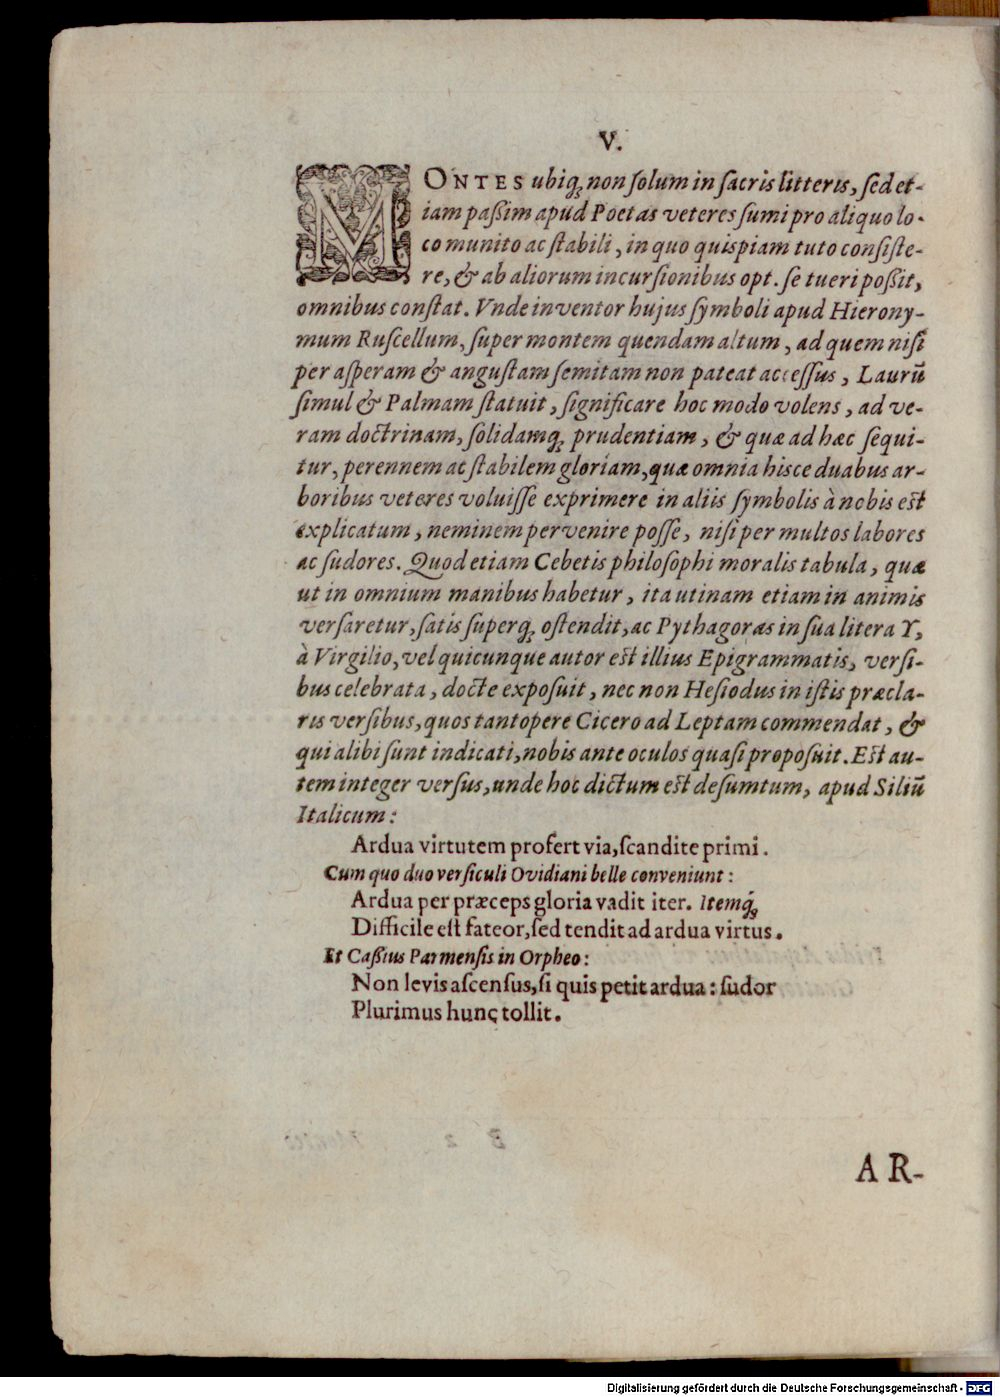 V.
MONTES ubiq; non ſolum in ſacris litteris, ſed et-
iam paßim apud Poetas veteres ſumi pro aliquo lo-
co munito ac ſtabili, in quo quispiam tuto conſiſte-
re, & ab aliorum incurſionibus opt. ſe tueri poßit,
omnibus conſtat. Vnde inventor hujus ſymboli apud Hierony-
mum Ruſcellum, ſuper montem quendam altum, ad quem niſi
per aſperam & anguſtam ſemitam non pateat acceſſus, Laurū
ſimul & Palmam ſtatuit, ſignificare hoc modo volens, ad ve-
ram doctrinam, ſolidamq; prudentiam, & quæ ad hæc ſequi-
tur, perennem ac ſtabilem gloriam, quæ omnia hisce duabus ar-
boribus veteres voluiſſe exprimere in aliis ſymbolis à nobis eſt
explicatum, neminem pervenire poſſe, niſi per multos labores
ac ſudores. Quod etiam Cebetis philoſophi moralis tabula, quæ
ut in omnium manibus habetur, ita utinam etiam in animis
verſaretur, ſatis ſuperq; oſtendit, ac Pythagoras in ſua litera Y,
à Virgilio, vel quicunque autor eſt illius Epigrammatis, verſi-
bus celebrata, docte expoſuit, nec non Heſiodus in iſtis præcla-
ris verſibus, quos tantopere Cicero ad Leptam commendat, &
qui alibi ſunt indicati, nobis ante oculos quaſi propoſuit. Eſt au-
tem integer verſus, unde hoc dictum eſt deſumtum, apud Siliū
Italicum:
Ardua virtutem profert via, ſcandite primi.
Cum quo duo verſiculi Ovidiani belle conveniunt:
Ardua per præceps gloria vadit iter. Itemq́;
Difficile eſt fateor, ſed tendit ad ardua virtus.
Et Caßius Parmenſis in Orpheo:
Non levis aſcenſus, ſi quis petit ardua: ſudor
Plurimus hunc tollit.
AR-
Digitalisierung gefördert durch die Deutsche Forschungsgemeinschaft - DFG